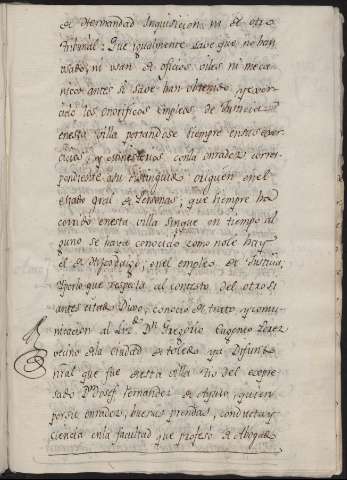 de Hermandad Inquisicion, ni de otro
Tribunal: Que igualmente save que no han
usado, ni usan de oficios viles ni meca
nicos antes si save han obtenido y exer
cido los onorificos empleos de Justicia
en esta villa portandose siempre en sus exer
cicios, y ministerios con la onrradez corres
pondiente a su distinguido origen en el
estado gral de Personas; que siempre ha
corrido en esta villa sin que en tiempo al
guno se haya conocido como no le hay
el de Hijosdalgo, en el empleo de Justicia,
Y por lo que respeta al contesto del otro si
antes citar Dixo: conocio de trato y comu
nicacion al Lizdo Dn Gregorio Eugenio Perez
vecino de la Ciudad de Toledo ya Difunto
nral que fue de esta villa tio del expre
sado Dn Josef Fernandez de quien
por su onradez, buenas prendas, conducta y
ciencia en la facultad que profesó de Abogado